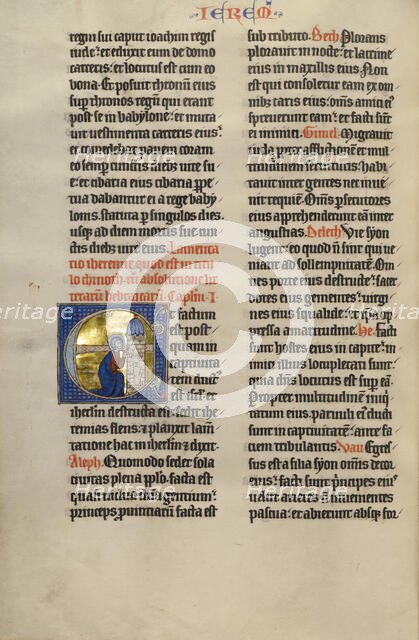 IEREM
regni sui caput ioachim regis
iude: et eduxit eum de domo
carceris. et locutus est cum eo
bona. Et posuit thronum eius
super thronos regum qui erant
post se in babylone. et muta
uit uestimenta carceris eius.
et comedebat panem coram
eo semper cunctis diebus uite su
e. et cibaria eius cibaria perpe
tua dabantur ei a rege baby
lonis. statuta per singulos dies
usque ad diem mortis sue cunc
tis diebus uite eius. Lamenta
tio iheremie quod est in titu
lo chinoth cum absolutione litt
terarum hebraicarum. Capitulum .I.
Et factum
est post
quam in
captiuita
tem duct
est israel. et
iherusalem destructa est. sedit ihe
remias flens. et planxit lamen
tatione hac in iherusalem et dixit.
Aleph. Quomodo sedet sola
ciuitas plena populo. facta est
quasi uidua domina gentium.
princeps prouinciarum facta est
sub tributo. Beth. Plorans
plorauit in nocte. et lacrime
eius in maxillis eius. Non
est qui consoletur eam ex om
nibus caris eius. omnes amici eius
spreuerunt eam. et facti sunt
ei inimici. Gimel. Migrauit
iuda propter afflictionem et mul
titudinem seruitutis. habi
tauit inter gentes nec inue
nit requiem. Omnes persecutores
eius apprehenderunt eam inter
angustias. Deleth. Uie syon
lugent. eo quod non sint qui ueni
ant ad sollempnitatem. Om
nes porte eius destructe. sacer
dotes eius gementes. uirgi
nes eius squalide. et ipsa op
pressa amaritudine. He. Fac
ti sunt hostes eius in capite. ini
mici illius locupletati sunt.
quia dominus locutus est super eam.
Propter multitudinem iniqui
tatum eius. paruuli eius ducti
sunt in captiuitatem. ante fa
ciem tribulantis. Uau. Egres
sus est a filia syon omnis decor
eius. facti sunt principes eius
uelut arietes non inuenientes
pascua. et abierunt absque for
Heritage
Images